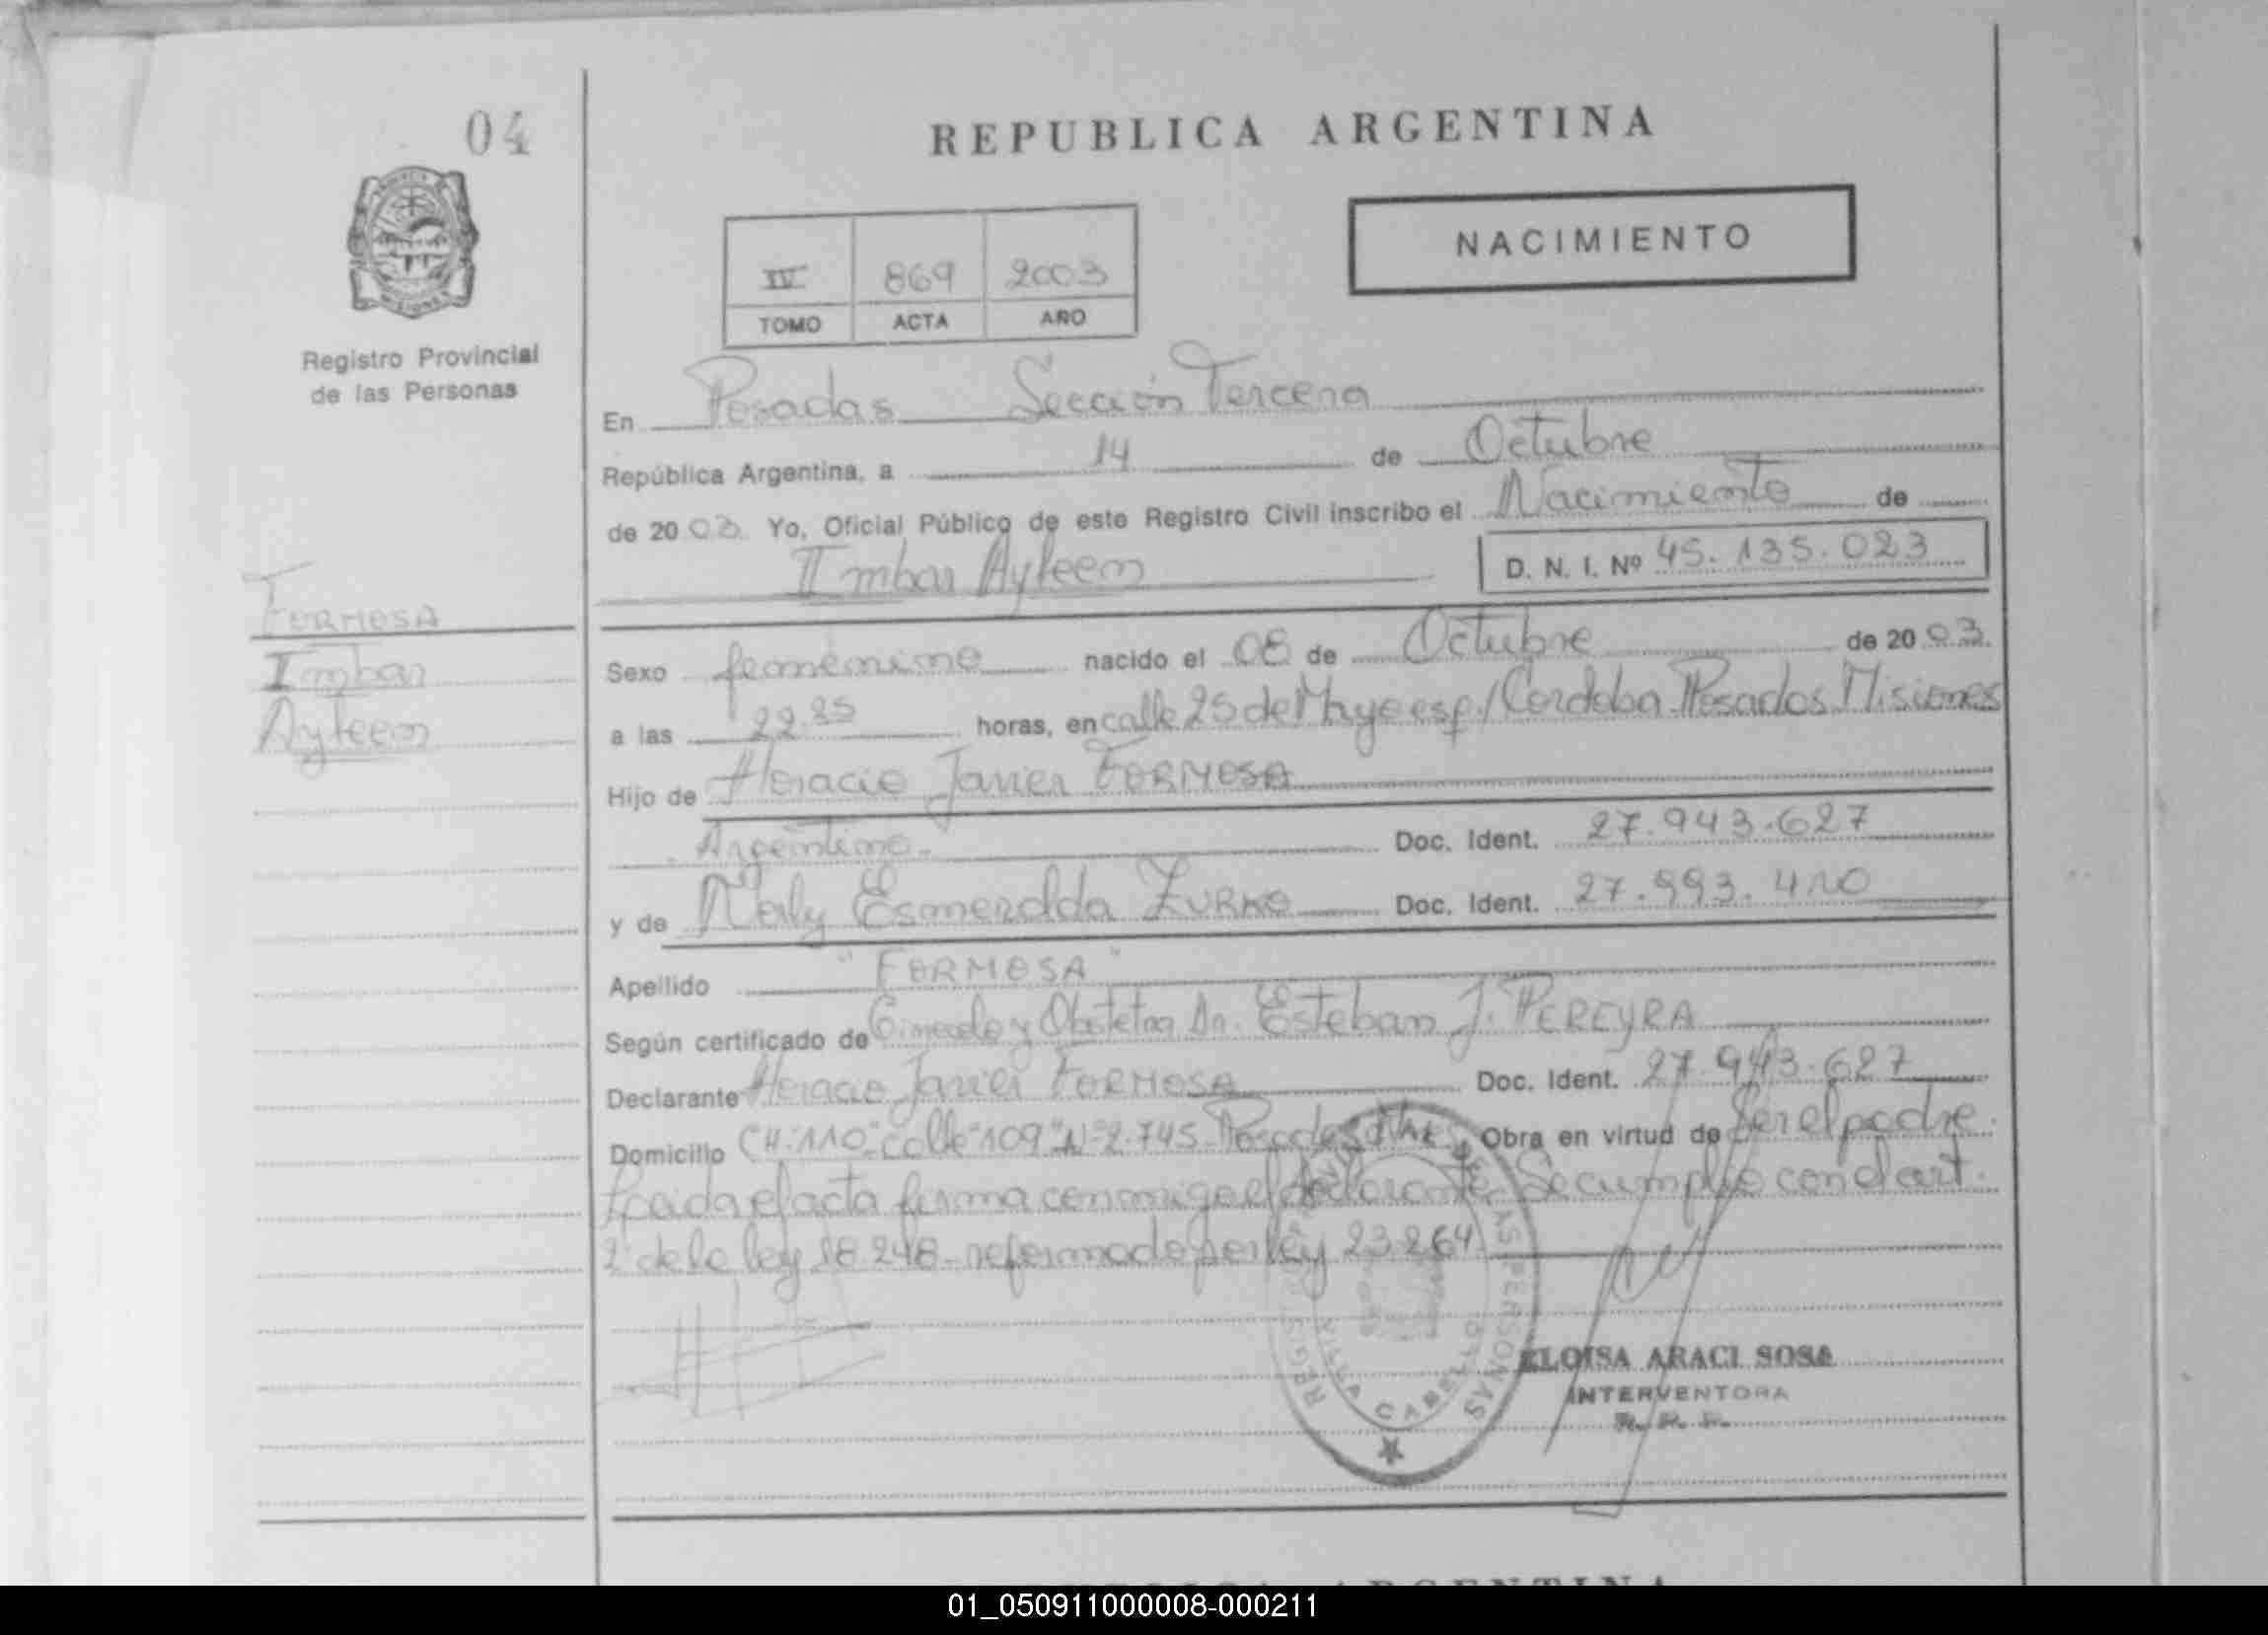 04
REPUBLICA ARGENTINA
NACIMIENTO
IV 869 2003
TOMO ACTA AÑO
Registro Provincial
de las Personas
En Posadas Sección Tercera
República Argentina, a 14 de Octubre
de 2003 Yo, Oficial Público de este Registro Civil inscribo el Nacimiento de
Imbar Ayleem
D. N. I. Nº 45.135.023
FORMOSA
Imbar
Ayleem
Sexo femenino nacido el 08 de Octubre de 2003.
a las 22.25 horas, en calle 25 de Mayo esq/Cordoba Posadas Misiones
Hijo de Horacio Javier FORMOSA
Argentino.- Doc. Ident. 27.943.627
y de Esmeralda Doc. Ident. 27.993.410
Apellido "FORMOSA"
Según certificado de Ginecolo y Obstetra Dr. Esteban J. PEREYRA
Declarante Horacio Javier FORMOSA Doc. Ident. 27.943.627
Domicilio CH. 110 calle 109 Nº 2.745 Posadas Mnes Obra en virtud de Ser el padre.
Leida el acta firma conmigo el declarante. Se cumplio con el art.
2 de la ley 18.248 - reformado por ley 23.264
REGISTRO PROVINCIAL DE LAS PERSONAS
VILLA CABELLO
ELOISA ARACI SOSA
INTERVENTORA
R. P. P.
REPUBLICA ARGENTINA
01_050911000008-000211